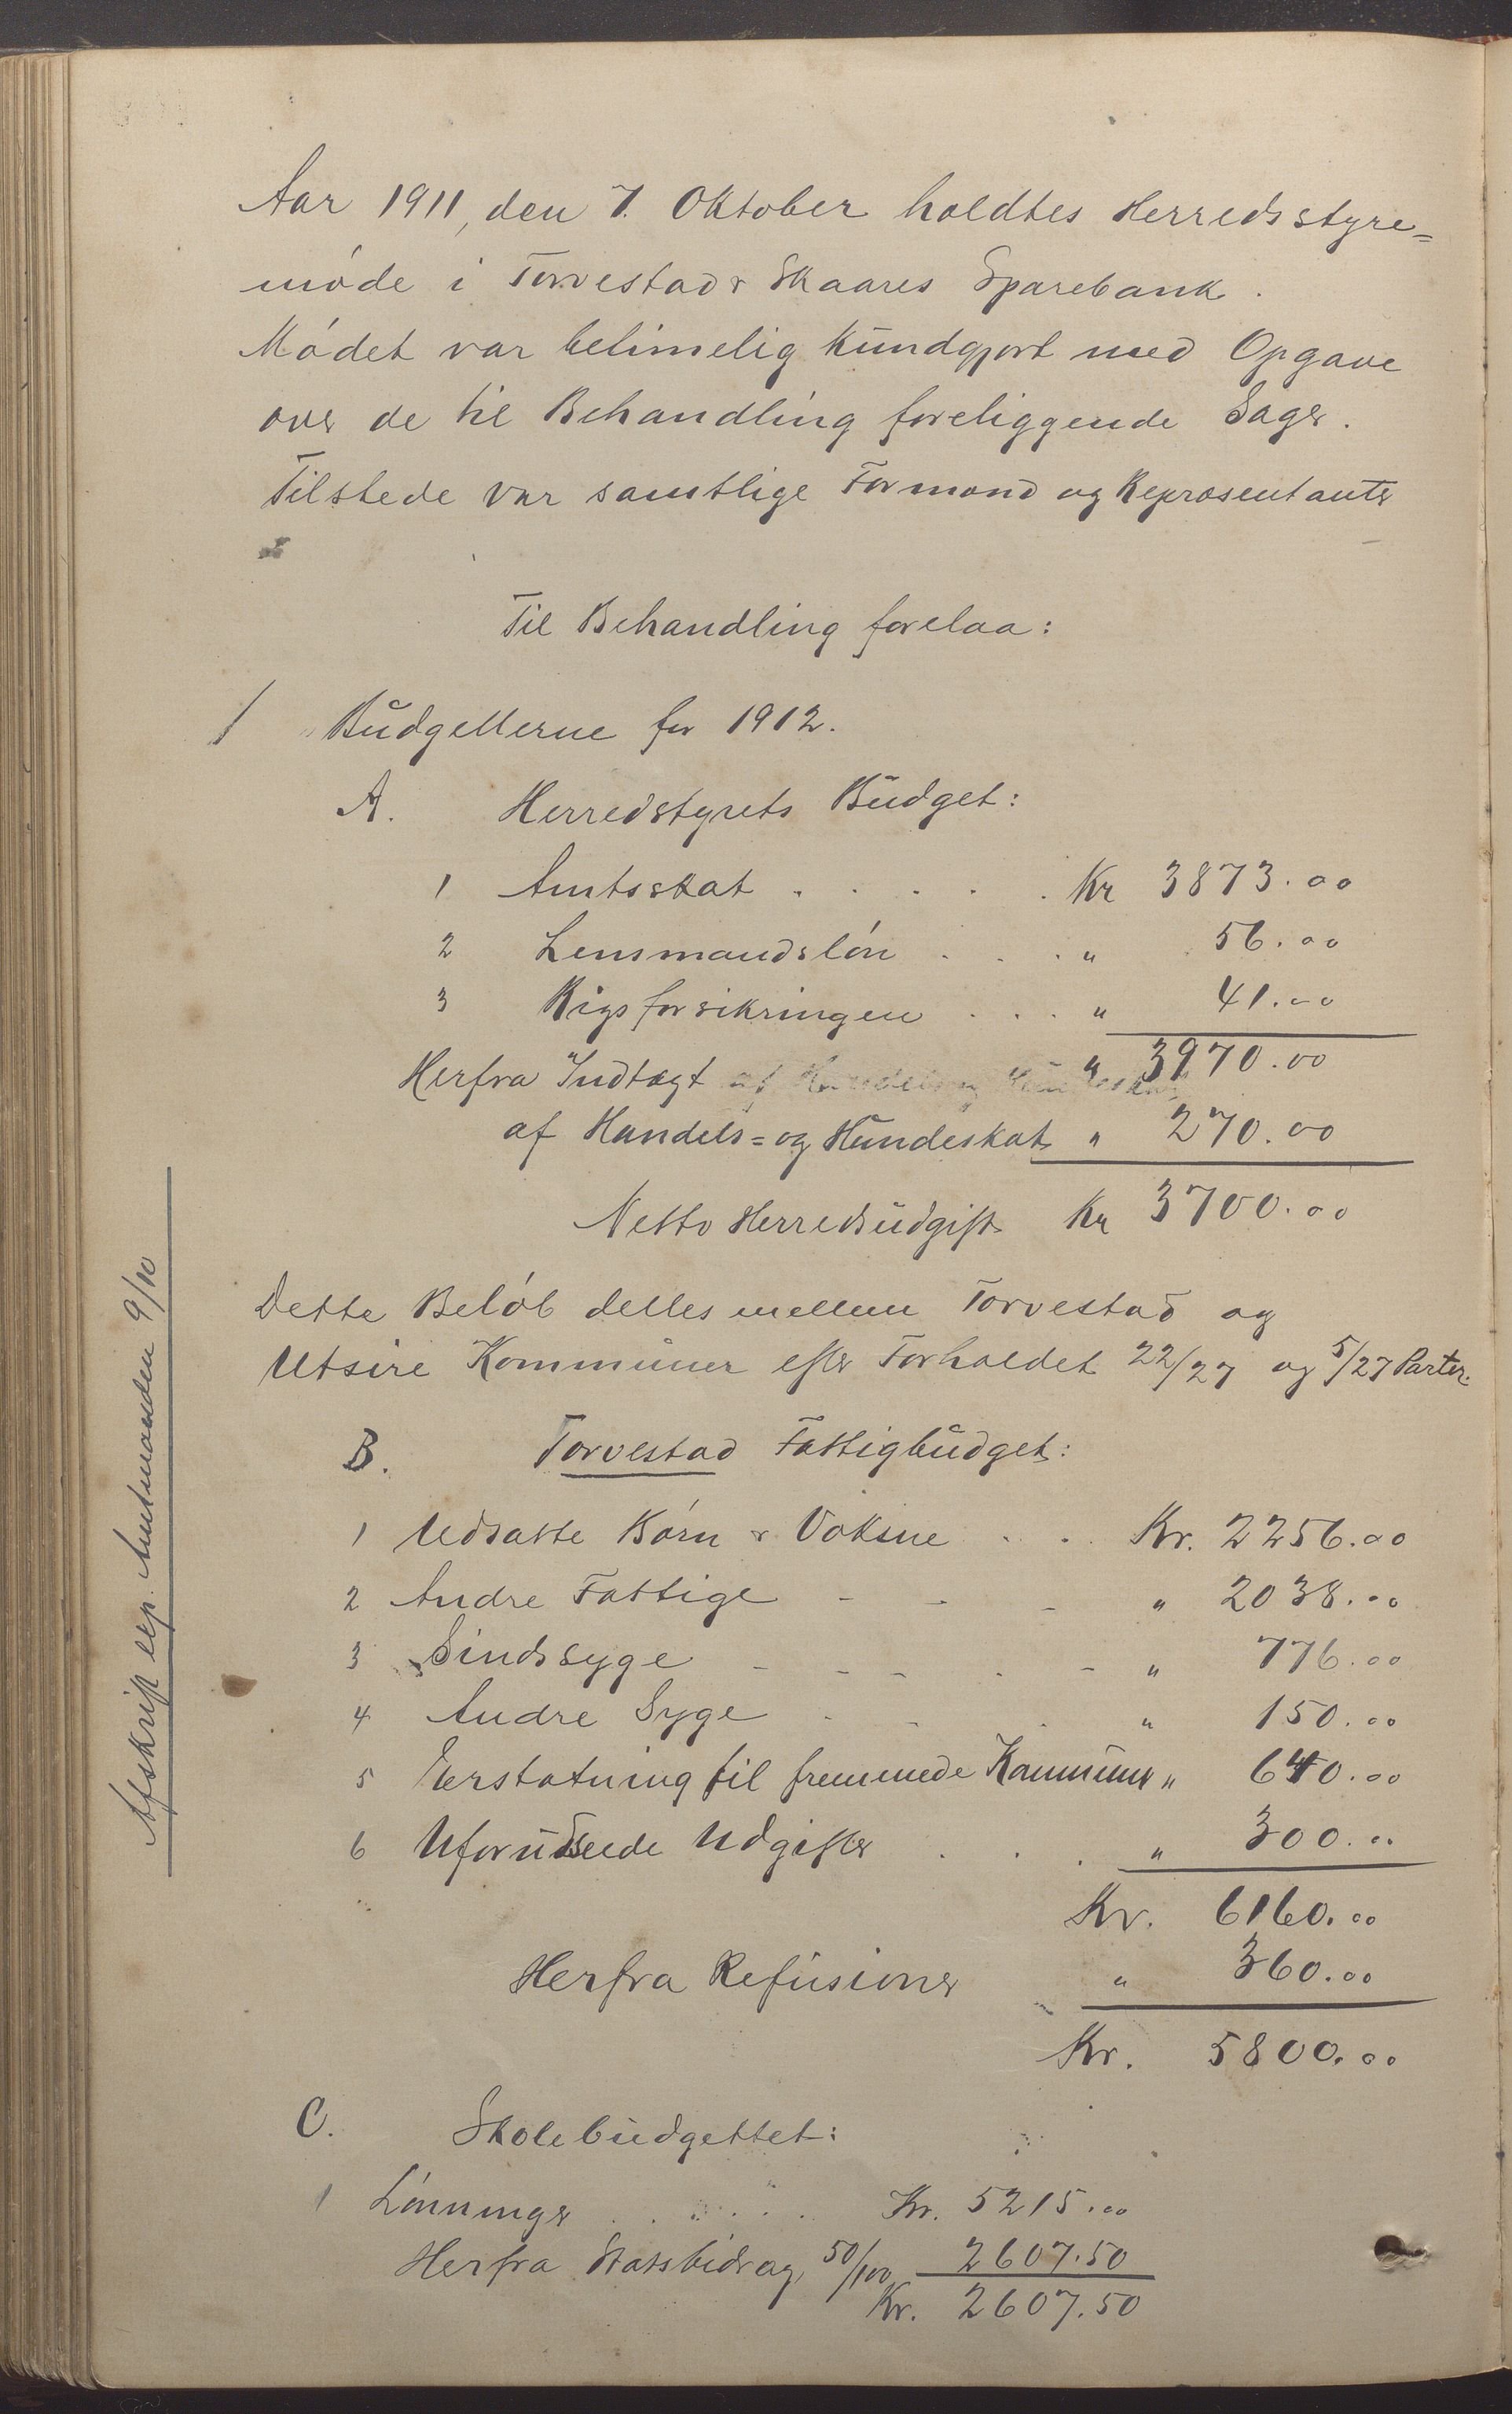 Aar 1911, den 7. Oktober holdtes Herredsstyre=
möde i Torvestad & Skaares Sparebank.
Mödet var betimelig kundgjort med Opgave
over de til Behandling foreliggende Sager.
Tilstede var samtlige Formænd og Repræsentanter
Til Behandling forelaa:
1 Budgetterne for 1912.
A. Herredstyrets Budget:
1 Amtsskat . . . . . Kr 3873.00
2 Lensmandslön . . . " 56.00
3 Rigsforsikringen . . . " 41.00
" 3970.00
Herfra Indtægt af Handels og Hundeskat
af Handels= og Hundeskat " 270.00
Netto Herredsudgift Kr 3700.00
Dette Belöb delles mellem Torvestad og
Utsire Kommuner efter Forholdet 22/27 og 5/27 Parter.
B. Torvestad Fattigbudget:
1 Udsatte Börn & Voksne . . Kr. 2256.00
2 Andre Fattige - - - " 2038.00
3 Sindssyge - - - . - " 776.00
4 Andre Syge . - . " 150.00
5 Erstatning til fremmede Kommuner " 640.00
6 Uforudseede Udgifter . . . " 300.00
Kr. 6160.00
Herfra Refusioner " 360.00
Kr. 5800.00
C. Skolebudgettet:
1 Lönninger . . . . . Kr. 5215.00
Herfra Statsbidrag 50/100 2607.50
Kr. 2607.50
Afskrift exp. Amtmanden 9/10